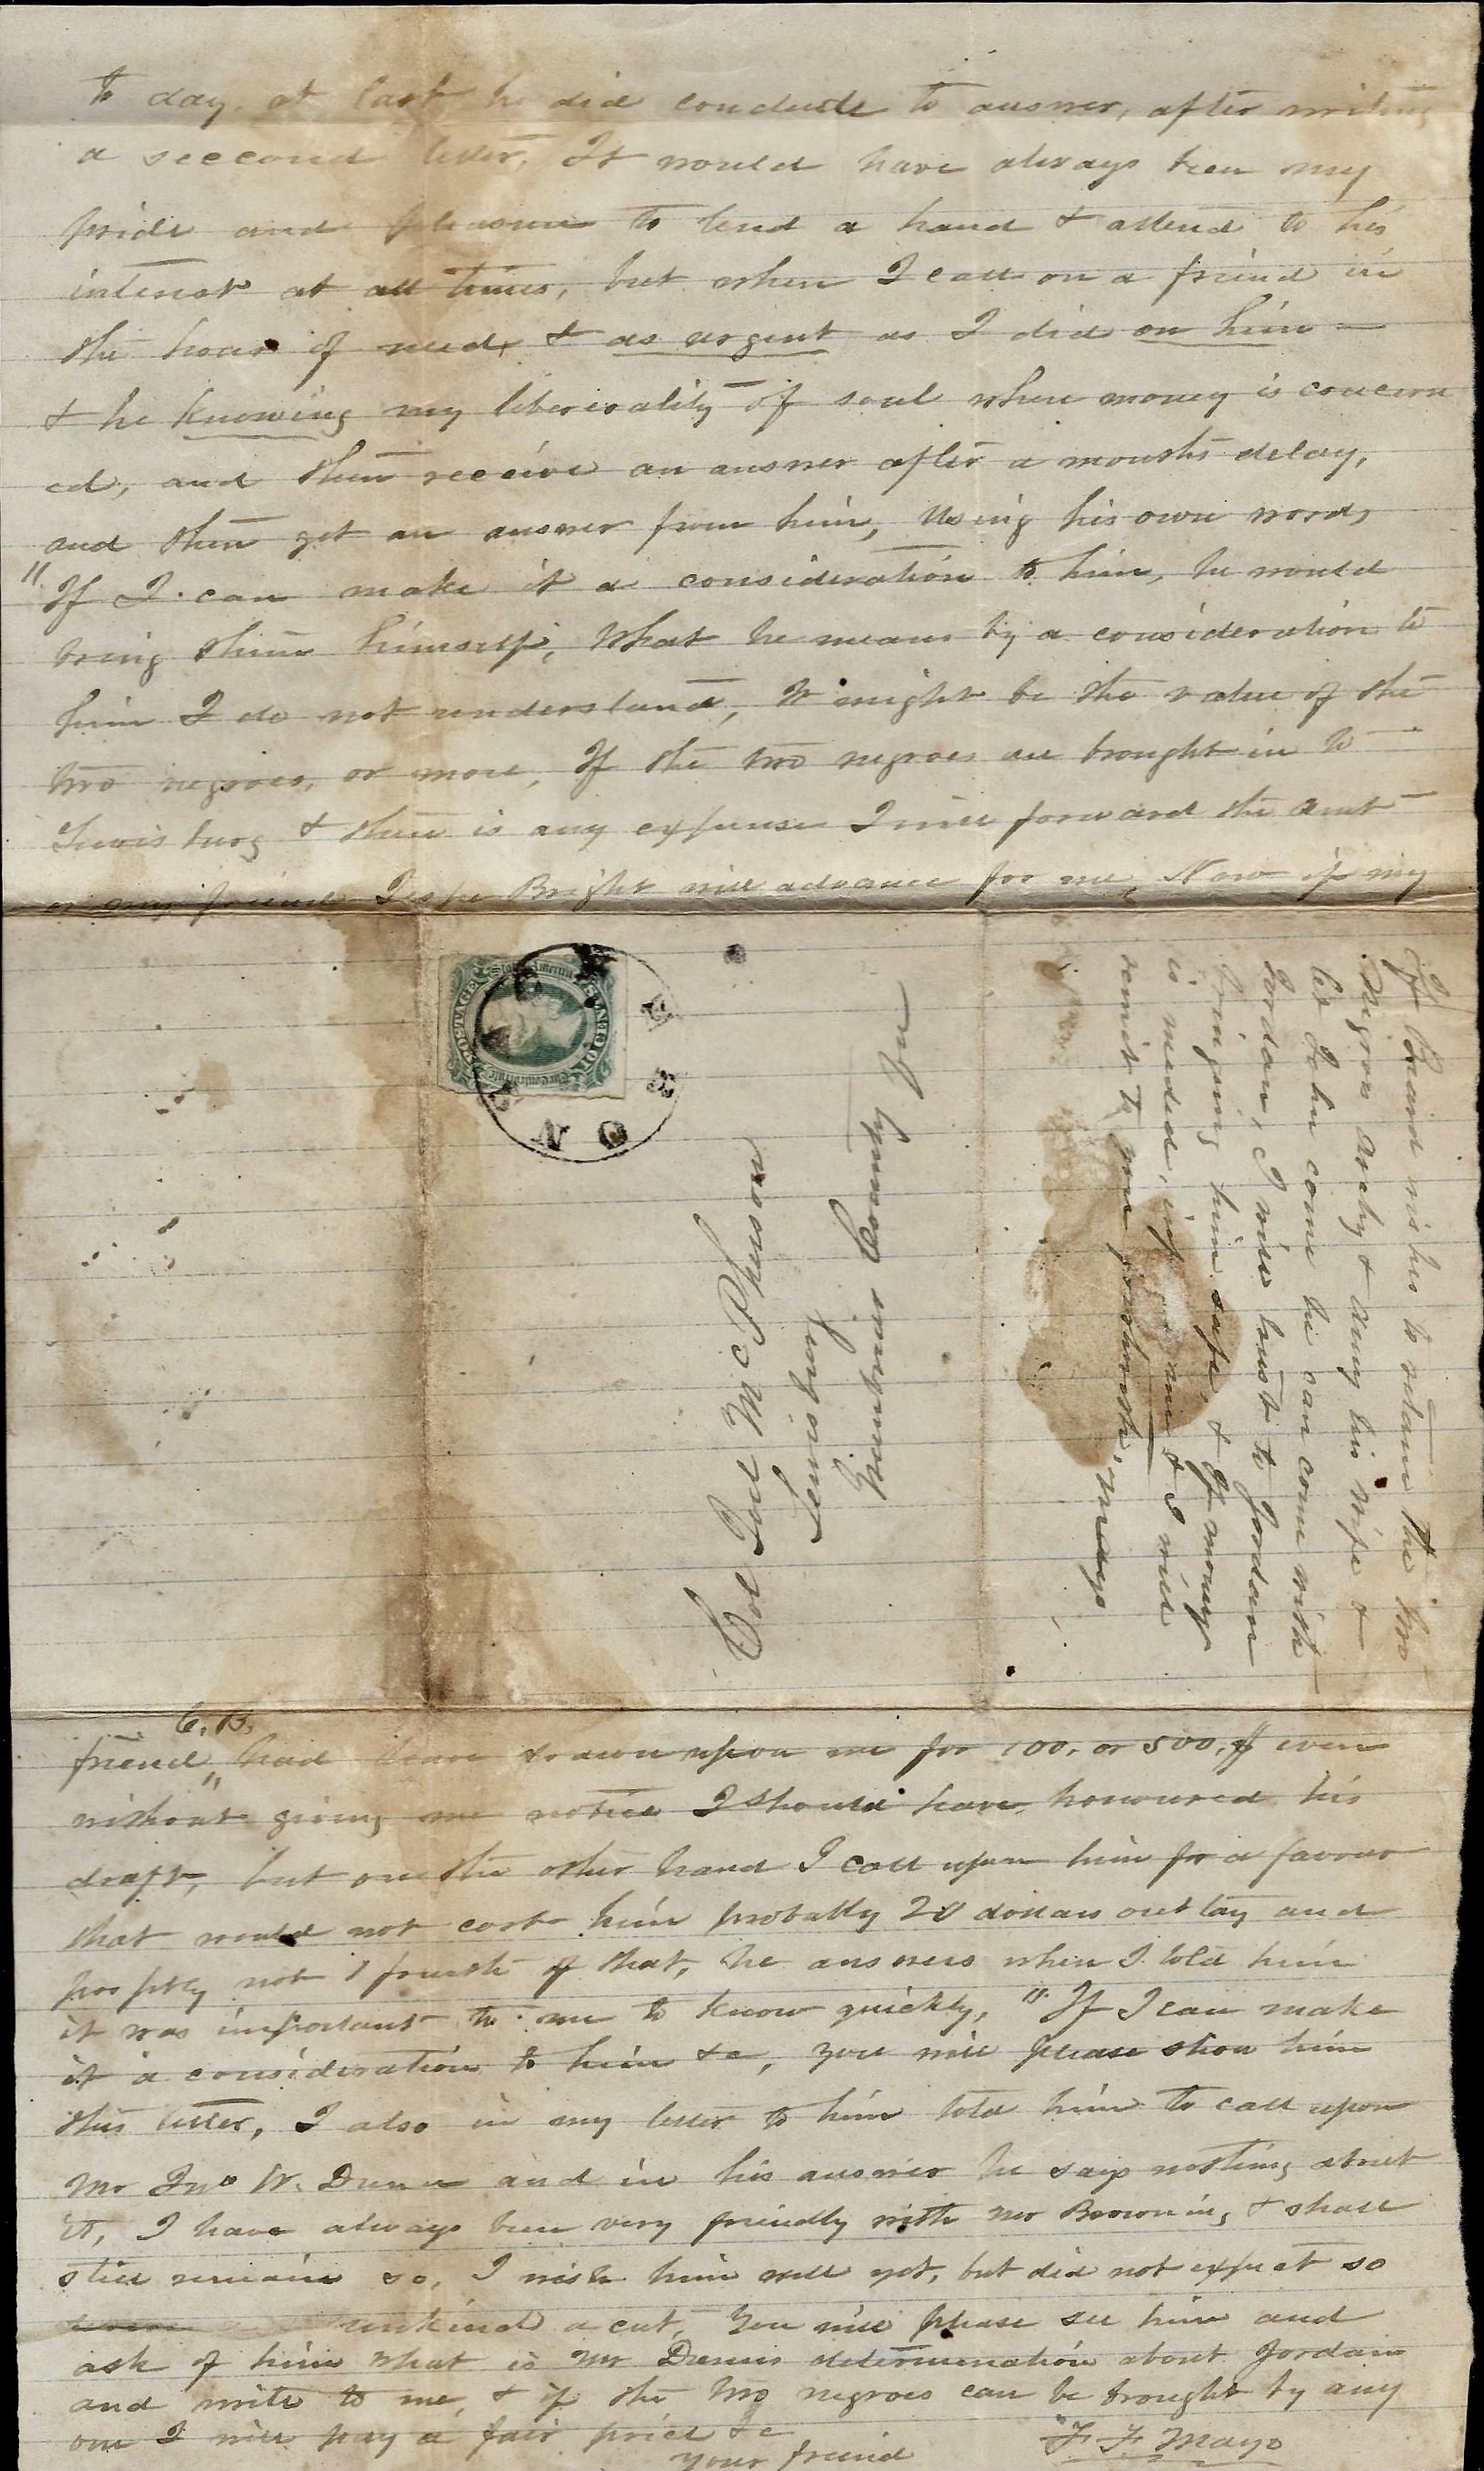 to day, at last he did conclude to answer, after writing
a seccond letter, It would have always been my
pride and pleasure to lend a hand & attend to his
interest at all times, but when I call on a friend in
the hour of need, & as urgent as I did on him -
& he knowing my liberirality of soul when money is concern
ed, and then receive an answer after a months delay,
and then get an answer from him, Using his own words
"If I can make it a consideration to him, he would
bring them himself, What he means by a consideration to
him I do not understand, It might be the value of the
two negroes, or more, If the two negroes are brought in to
Lewisburg & there is any expense I will forward the amt
or my friend Bright will advance for me, Now if my
CONFEDERATE States of America
POSTAGE
TEN CENTS
Col Joel McPherson
Lewisburg
Greenbrier County Va
If Braind wishes to retain the two
Negroes Anky & Amy his wife &
let John come he can come with
Jordan, I will trust to Jordan
bringing him safe, & If money
is needed, inf me & I will
remit to you forthwith, Mayo
friend C. B. had drawn upon me for 100. or 500.$ even
without giving me notice I should have honoured his
draft, but on the other hand I call upon him for a favour
that would not cost him probably 20 dollars outlay and
possibly not 1 fourth of that, he answers when I told him
it was important to me to know quickly, "If I can make
it a consideration to him &c, you will please show him
this letter, I also in my letter to him told him to call upon
Mr Jno W. Dunn and in his answer he says nothing about
it, I have always been very friendly with Mr Browning & shall
still remain so, I wish him well yet, but did not expect so
unkind a cut, You will please see him and
ask of him what is Mr Dunns determination about Jordan
and write to me, & if the two negroes can be brought by any
one I will pay a fair price &c
your friend
F F Mayo